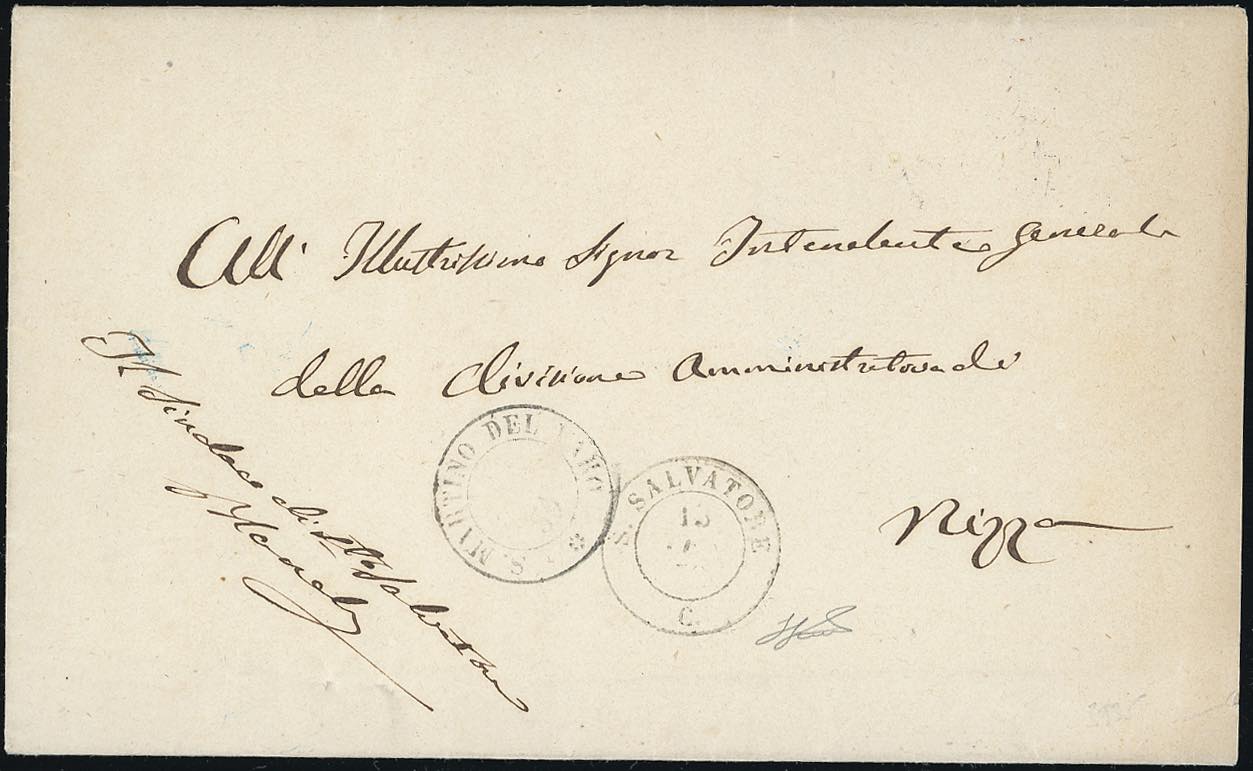 All' Illustrissimo Signor Intendente Generale
della Divisione Amministrativa di
Nizza
Il Sindaco di S. Salvatore
S. MARTINO DEL VARO
S. SALVATORE
13
C.